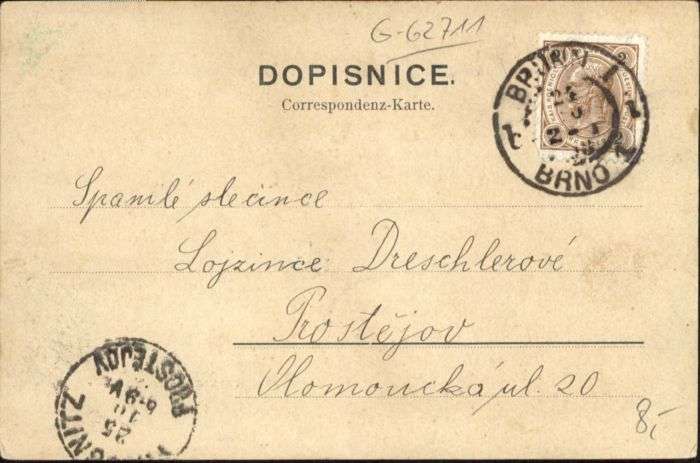 G-62711
DOPISNICE.
Correspondenz-Karte.
BRÜNN 1
BRNO
Spanilé slečince
Lojzince Dreschlerové
Prostějov
Olomoucká ul. 20
PROSTĚJOV
25
10
8,-